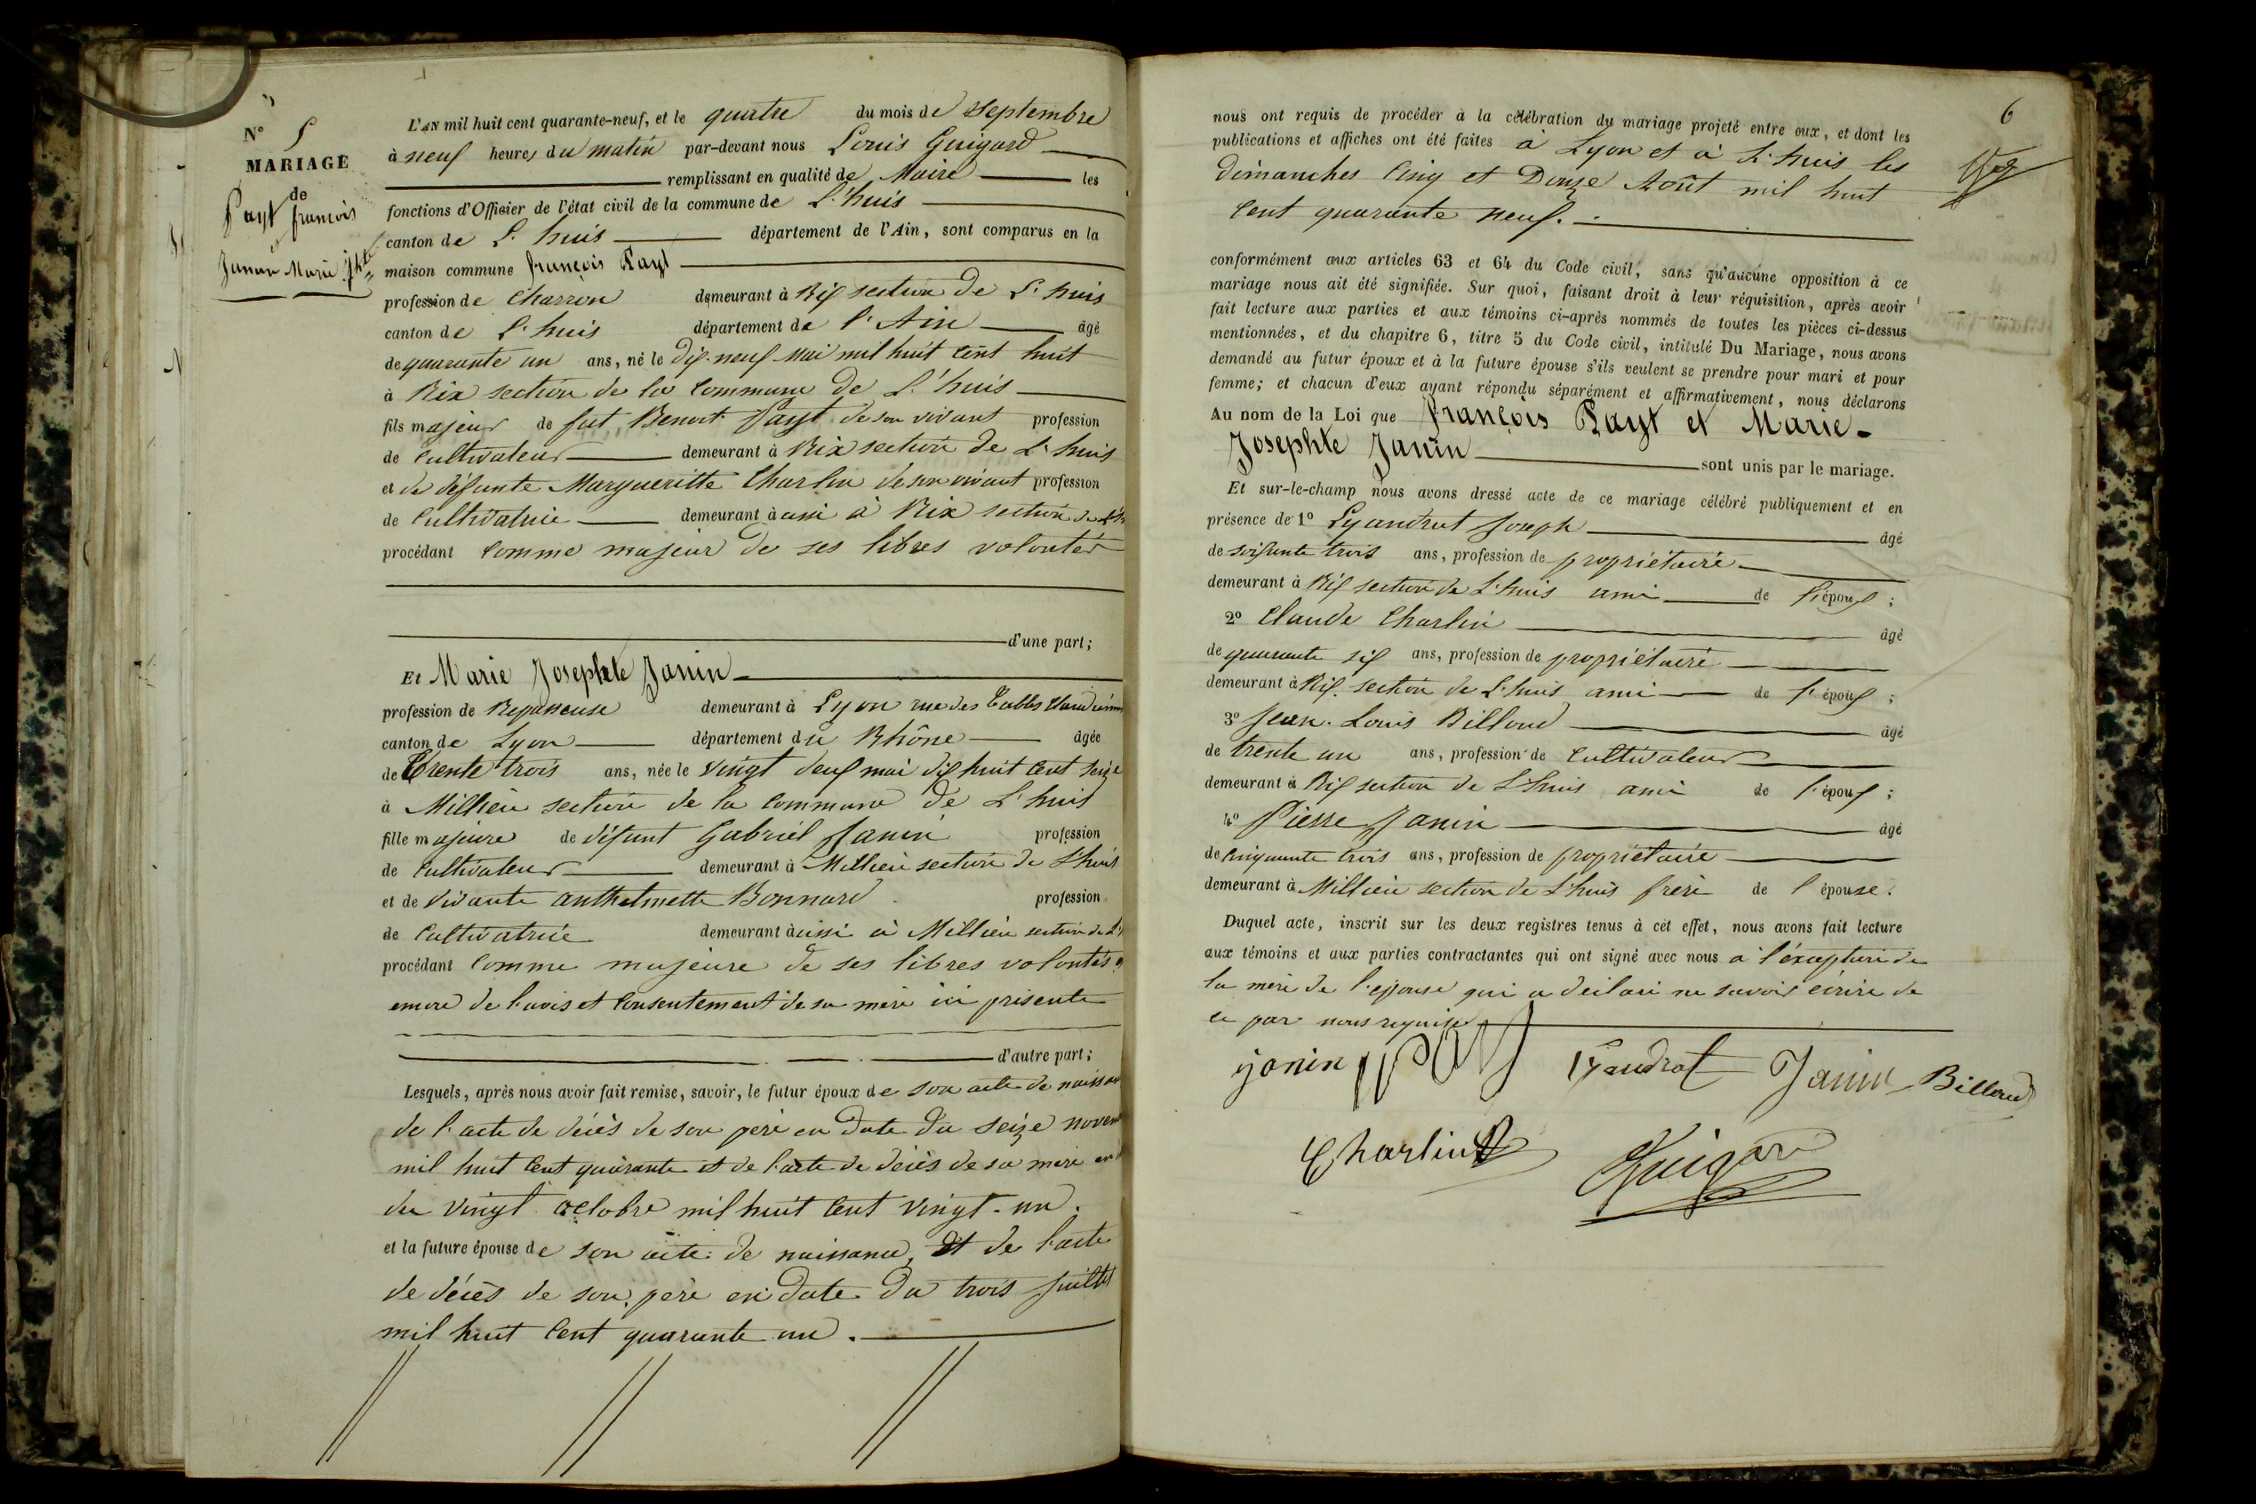 N° 5
MARIAGE
de
Payt françois
et
Janin Marie Jhte
L'AN mil huit cent quarante-neuf, et le quatre du mois de Septembre
à neuf heures du matin par-devant nous Louis Guigard
remplissant en qualité de Maire les
fonctions d'Officier de l'état civil de la commune de L'huis
canton de L'huis département de l'Ain, sont comparus en la
maison commune françois Payt
profession de Charron demeurant à Rix section de L'huis
canton de L'huis département de l'Ain âgé
de quarante un ans, né le dix-neuf Mai mil huit cent huit
à Rix section de la commune de L'huis
fils majeur de feu Benoit Payt de son vivant profession
de Cultivateur demeurant à Rix section de L'huis
et de défunte Margueritte Charlin de son vivant profession
de Cultivatrice demeurant à aussi à Rix section de L'h
procédant comme majeur de ses libres volontés
d'une part;
Et Marie Josephte Janin
profession de Repasseuse demeurant à Lyon rue des tables Claudiennes
canton de Lyon département du Rhône âgée
de Trente trois ans, née le vingt deux mai dix huit cent seize
à Millieu section de la commune de L'huis
fille majeure de défunt Gabriel Janin profession
de Cultivateur demeurant à Millieu section de L'huis
et de vivante anthelmette Bonnard profession
de Cultivatrice demeurant à aussi à Millieu section de L'
procédant comme majeure de ses libres volontés et
encore de l'avis et consentement de sa mère ici présente
d'autre part;
Lesquels, après nous avoir fait remise, savoir, le futur époux de son acte de naissance
de l'acte de décès de son père en date du seize novem
mil huit cent quarante et de l'acte de décès de sa mère en d
du vingt octobre mil huit cent vingt-un.
et la future épouse de son acte de naissance, et de l'acte
de décès de son père en date du trois juillet
mil huit cent quarante un.
6
nous ont requis de procéder à la célébration du mariage projeté entre eux, et dont les
publications et affiches ont été faites à Lyon et à L'huis les
dimanches Cinq et Douze Août mil huit
cent quarante neuf.
conformément aux articles 63 et 64 du Code civil, sans qu'aucune opposition à ce
mariage nous ait été signifiée. Sur quoi, faisant droit à leur réquisition, après avoir
fait lecture aux parties et aux témoins ci-après nommés de toutes les pièces ci-dessus
mentionnées, et du chapitre 6, titre 5 du Code civil, intitulé Du Mariage, nous avons
demandé au futur époux et à la future épouse s'ils veulent se prendre pour mari et pour
femme; et chacun d'eux ayant répondu séparément et affirmativement, nous déclarons
Au nom de la Loi que françois Payt et Marie-
Josephte Janin sont unis par le mariage.
Et sur-le-champ nous avons dressé acte de ce mariage célébré publiquement et en
présence de 1° Lyandrat Joseph âgé
de soixante trois ans, profession de propriétaire
demeurant à Rix section de L'huis ami de l'époux;
2° Claude Charlin âgé
de quarante six ans, profession de propriétaire
demeurant à Rix section de L'huis ami de l'époux;
3° Jean-Louis Billoud âgé
de trente un ans, profession de Cultivateur
demeurant à Rix section de L'huis ami de l'époux;
4° Pierre Janin âgé
de cinquante trois ans, profession de propriétaire
demeurant à Millieu section de L'huis frère de l'épouse.
Duquel acte, inscrit sur les deux registres tenus à cet effet, nous avons fait lecture
aux témoins et aux parties contractantes qui ont signé avec nous à l'exception de
la mère de l'épouse qui a déclaré ne savoir écrire de
ce par nous requise
janin Lyandrat Janin Billoud
Charlin Guigard